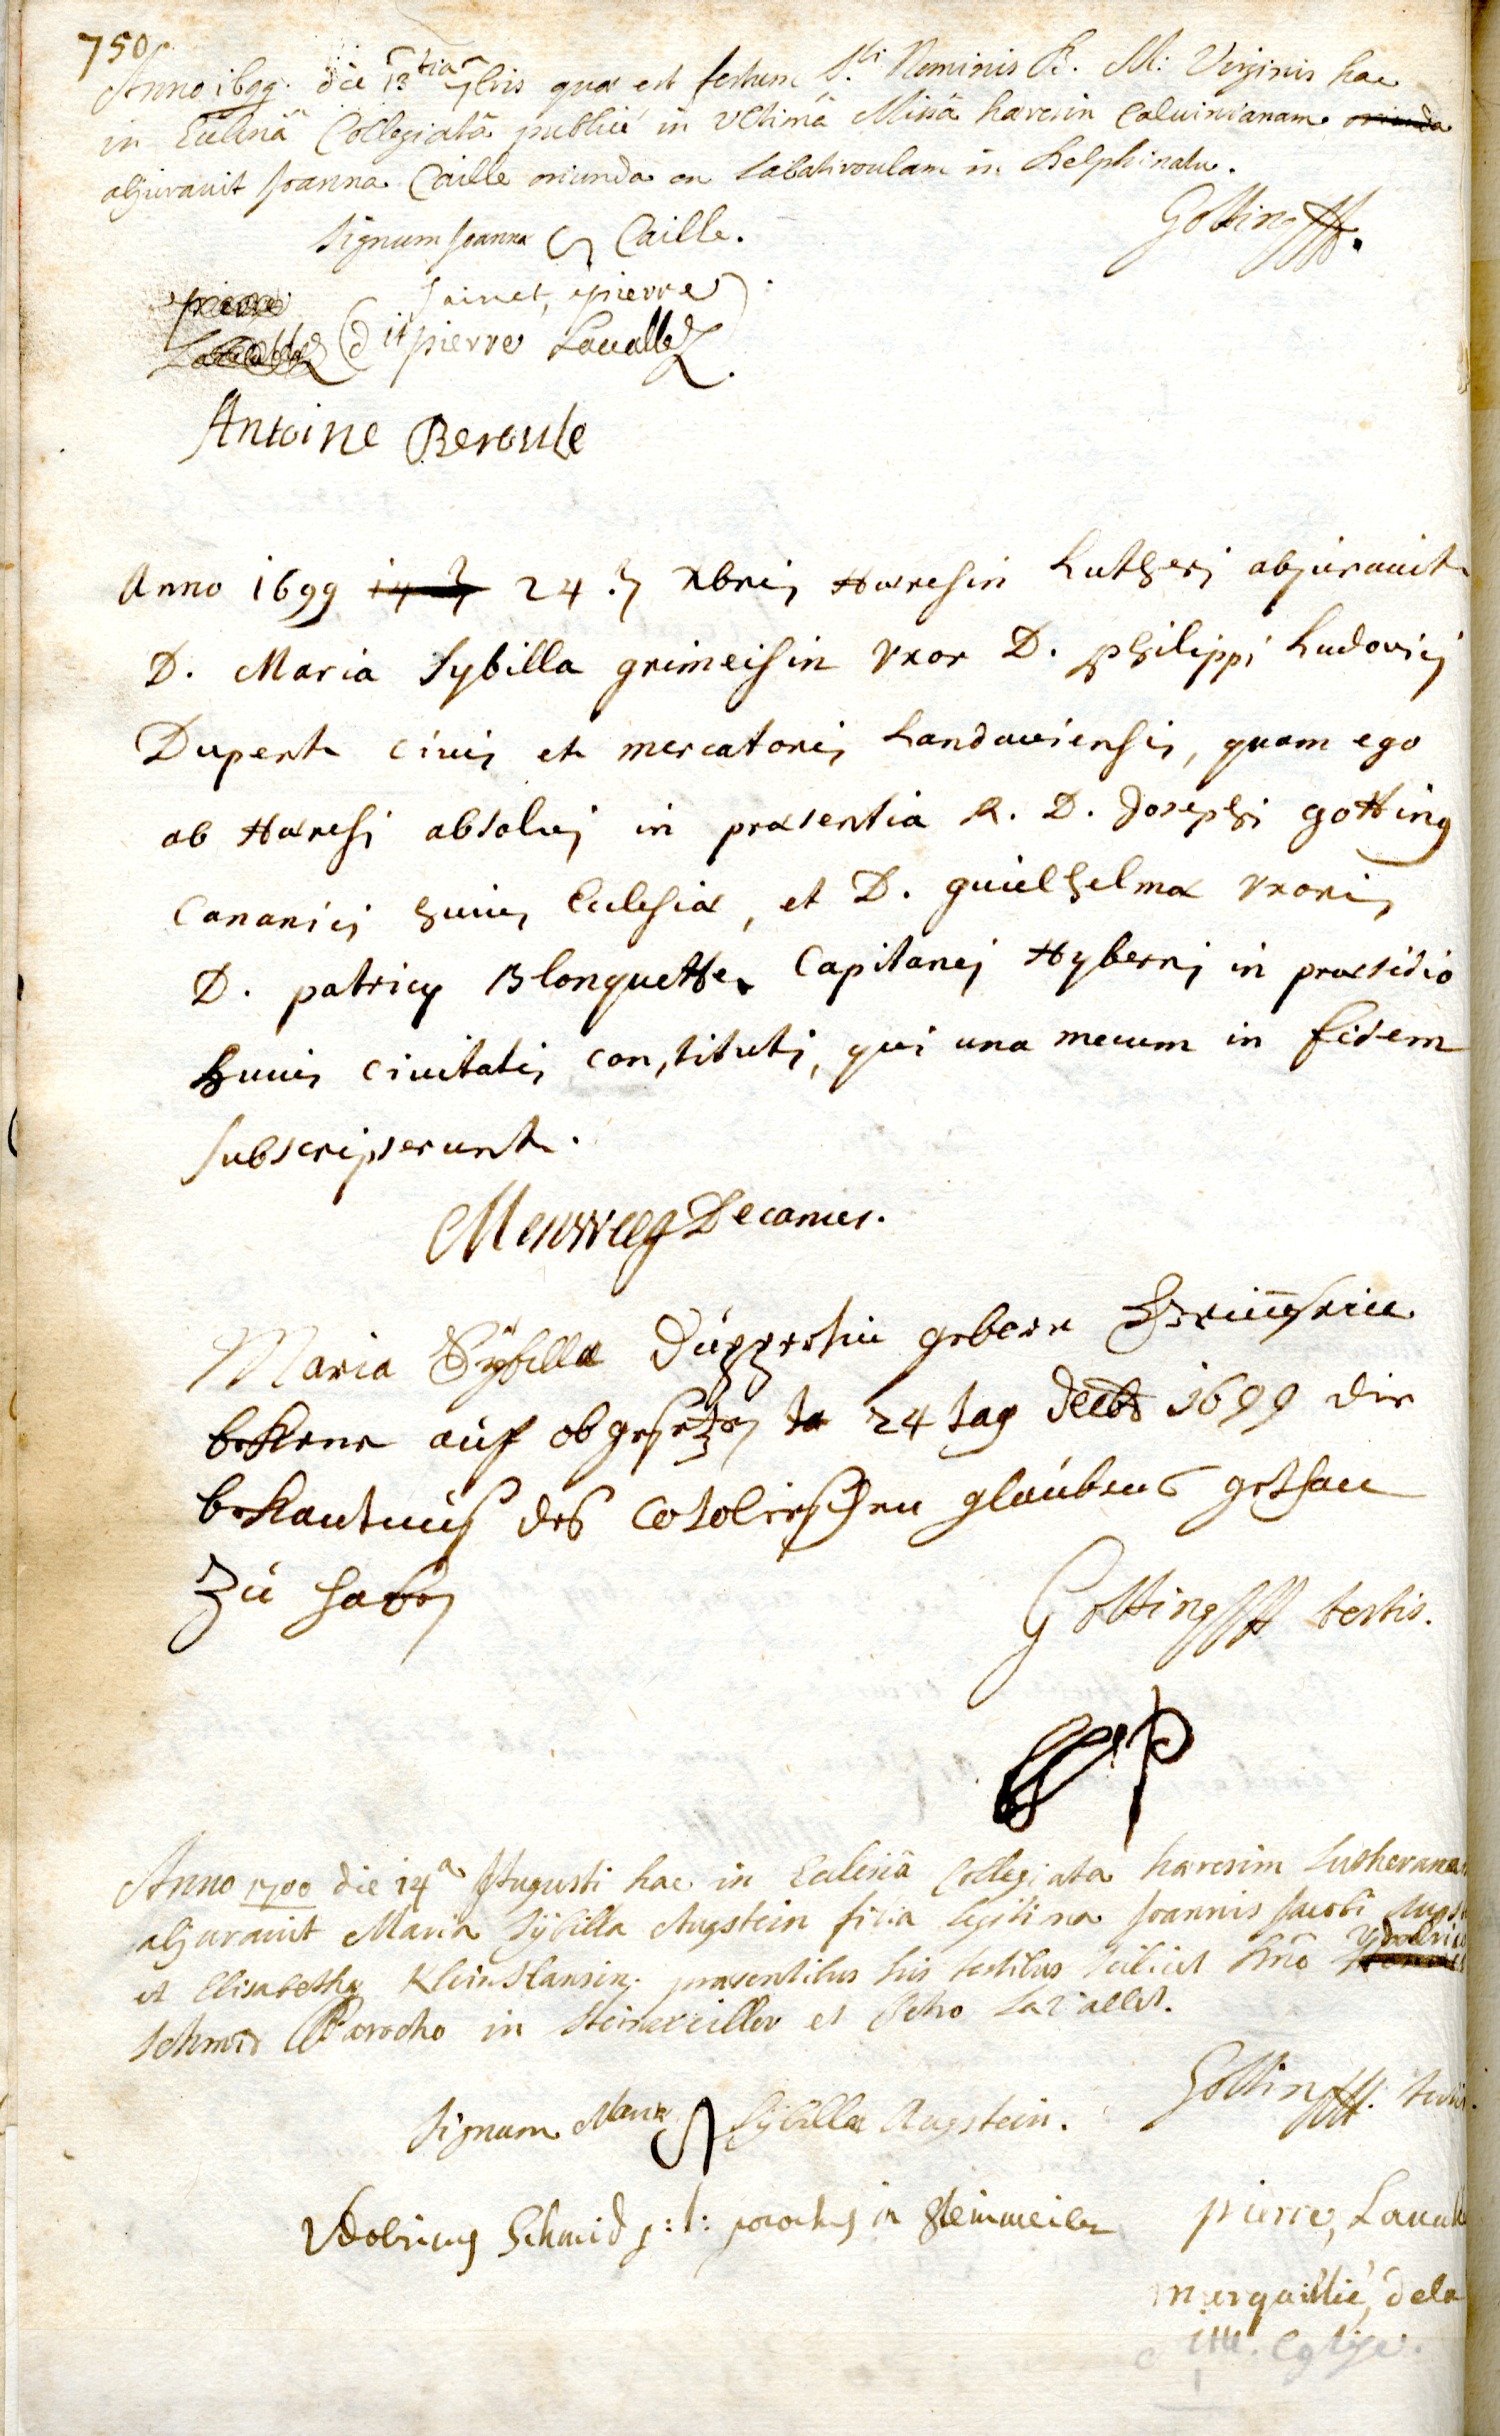 750
Anno 1699. die 13tia 7bris quæ est festum S.ti Nominis B. M: Virginis hac
in Ecclesiâ Collegiatâ publicè in ultimâ Missâ hæresin Calvinianam oriunda
abjuravit Joanna Caille oriunda ex in Delphinatu.
Gotting
Signum Joannæ Caille.
pierre sainct, epierre
dit pierre Lauallez
Antoine Beroule
Anno 1699 14 24 .ta Xbris Hæresin Lutheri abjurauit
D. Maria Sybilla grimeisin vxor D. philippi Ludovici
Dupert civis et mercatoris Landaviensis, quam ego
ab Hæresi absolvi in præsentia R. D. Josephi gotting
Canonici huius Eclesiæ, et D. guielhelmæ vxoris
D. patricij Blonquette Capitanei Hyberni in præsidio
huius civitatis constituti, qui una mecum in fidem
subscripserunt.
Decanus.
Maria Sÿbilla Düppertin geboren
bekene auf obgesetzen 24 tag decb 1699 die
bekantnus des Catolischen glaubens gethan
zu haben
Gotting testis.
P
Anno 1700 die 14a Augusti hac in Ecclesiâ Collegiata hæresim Lutheranam
abjuravit Maria Sÿbilla Augstein filia legitima Joannis Jacobi Augst
et Elisabethæ Kleinhansin. præsentibus his testibus scilicet Dno Vdalrico
Schmid Parocho in Steinweiller et Petro Lavallet.
Gotting testis.
Signum Mariæ Sÿbillæ Augstein.
Vdalricus Schmid p: t: parochus in Steinweiler
pierre, Lauall
marguillié, dela
Eglise.